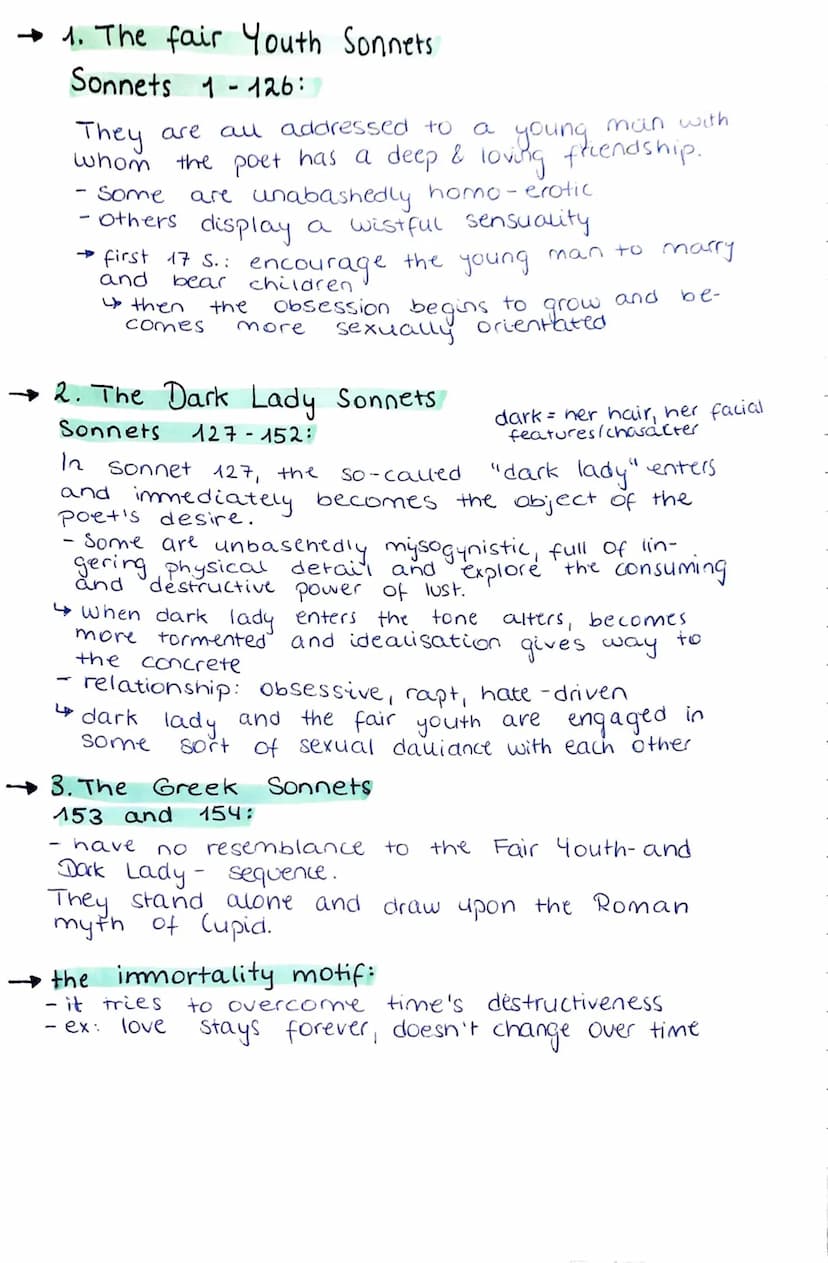 → 1. The fair Youth Sonnets
Sonnets 1 - 126:
They are all addressed to a young man with
whom the poet has a deep & loving friendship.
- some are unabashedly homo-erotic
- others display a wistful sensuality
→ first 17 s.: encourage the young man to marry
and bear children
↳ then the obsession begins to grow and be-
comes more sexually orientated
→ 2. The Dark Lady Sonnets
Sonnets 127 - 152:
dark = her hair, her facial
features/character
In sonnet 127, the so-called "dark lady" enters
and immediately becomes the object of the
poet's desire.
- Some are unbashedly mysogynistic, full of lin-
gering physical detail and explore the consuming
and destructive power of lust.
↳ when dark lady enters the tone alters, becomes
more tormented and idealisation gives way to
the concrete
- relationship: obsessive, rapt, hate-driven
↳ dark lady and the fair youth are engaged in
some sort of sexual dalliance with each other
→ 3. The Greek Sonnets
153 and 154:
- have no resemblance to the Fair Youth- and
Dark Lady - sequence.
They stand alone and draw upon the Roman
myth of Cupid.
→ the immortality motif:
- it tries to overcome time's destructiveness
- ex: love stays forever, doesn't change over time